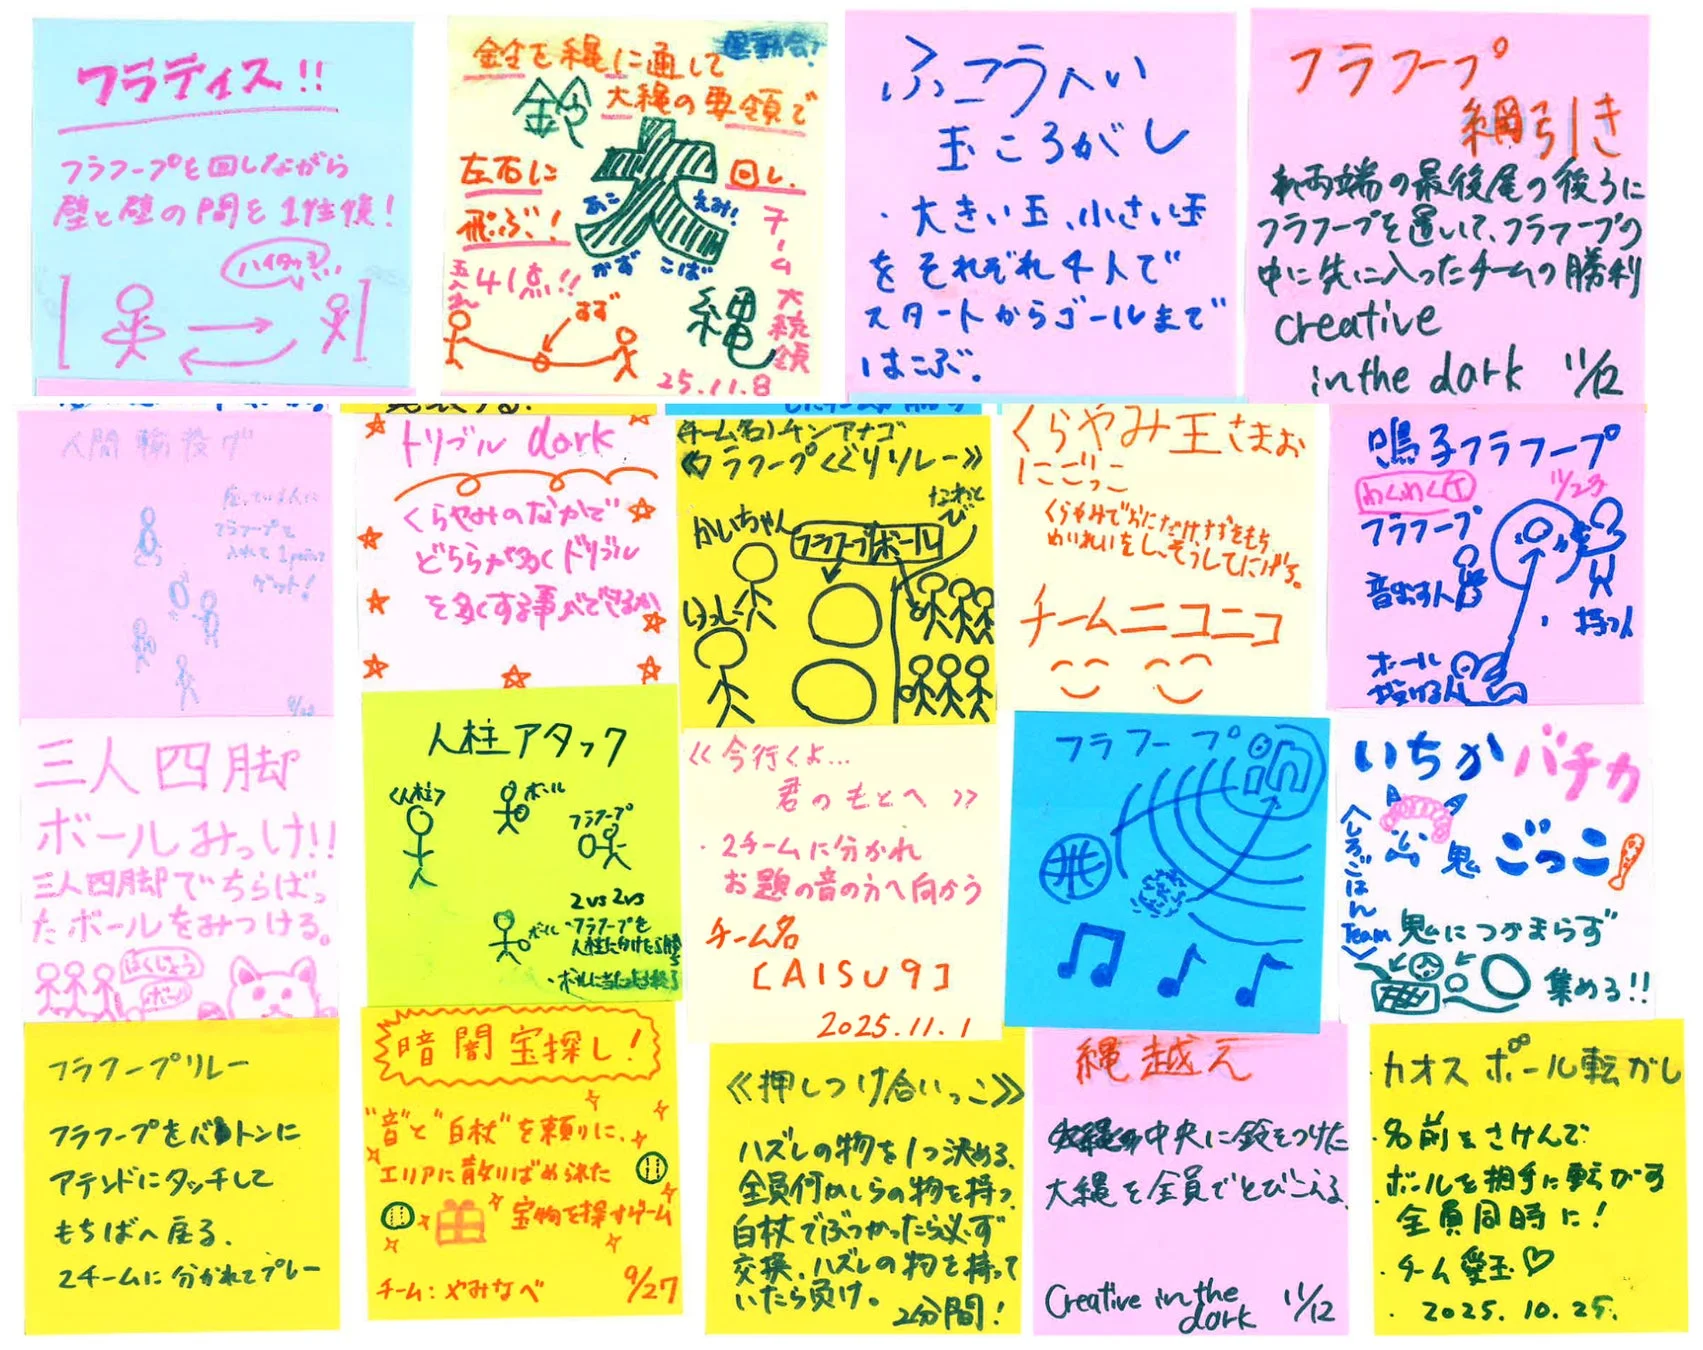 フラティス!!
フラフープを回しながら
壁と壁の間を1往復!
ハイタッチ!!
鈴を縄に通して
運動会!
大縄の要領で
鈴
大
縄
左右に
回し、
飛ぶ!
あこ
えみ!
かず
こば
玉入れ
41点!!
すず
チーム大統領
25.11.8
ふこうへい
玉ころがし
・大きい玉、小さい玉
をそれぞれ4人で
スタートからゴールまで
はこぶ。
フラフープ
綱引き
両端の最後尾の後ろに
フラフープを置いて、フラフープの
中に先に入ったチームの勝利
creative
in the dark 11/12
人間輪投げ
座っている人に
フラフープを
入れて1point
ゲット!
トリブル dark
くらやみのなかで
どちらが多くドリブル
を多くする事ができるか
(チーム名)チンアナゴ
《フラフープくぐりリレー》
なわとび
かいちゃん
フラフープ
ボール
くらやみ王さまお
にごっこ
くらやみでおになげ、すずをもち
めいれいをし、そうしてにげる。
チームニコニコ
鳴子フラフープ
わくわく
11/23
フラフープ
音出す人
持つ人
ボール
投げる人
三人四脚
ボールみっけ!!
三人四脚でちらばっ
たボールをみつける。
はくじょう
ポン
人柱アタック
<人柱>
ボール
フラフープ
ボール
2vs2vs
・フラフープを
人柱にかけたら勝ち
・ボールに当たったら終了
《今行くよ...
君のもとへ》
・2チームに分かれ
お題の音の方へ向かう
チーム名
[AISU9]
2025.11.1
フラフープ in
いちかバチカ
鬼 ごっこ
<しろごはんTeam>
鬼につかまらず
集める!!
フラフープリレー
フラフープをバトンに
アテンドにタッチして
もちばへ戻る.
2チームに分かれてプレー
暗闇宝探し!
"音"と"白杖"を頼りに、
エリアに散りばめられた
宝物を探すゲーム
チーム:やみなべ 9/27
《押しつけ合いっこ》
ハズレの物を1つ決める、
全員何かしらの物を持つ、
白杖でぶつかったら必ず
交換、ハズレの物を持って
いたら負け。
2分間!
縄越え
中央に鈴をつけた
大縄を全員でとびこえる
Creative in the
dark 11/12
・カオスボール転がし
・名前をさけんで
・ボールを相手に転がす
・全員同時に!
・チーム愛玉♡
・2025.10.25.